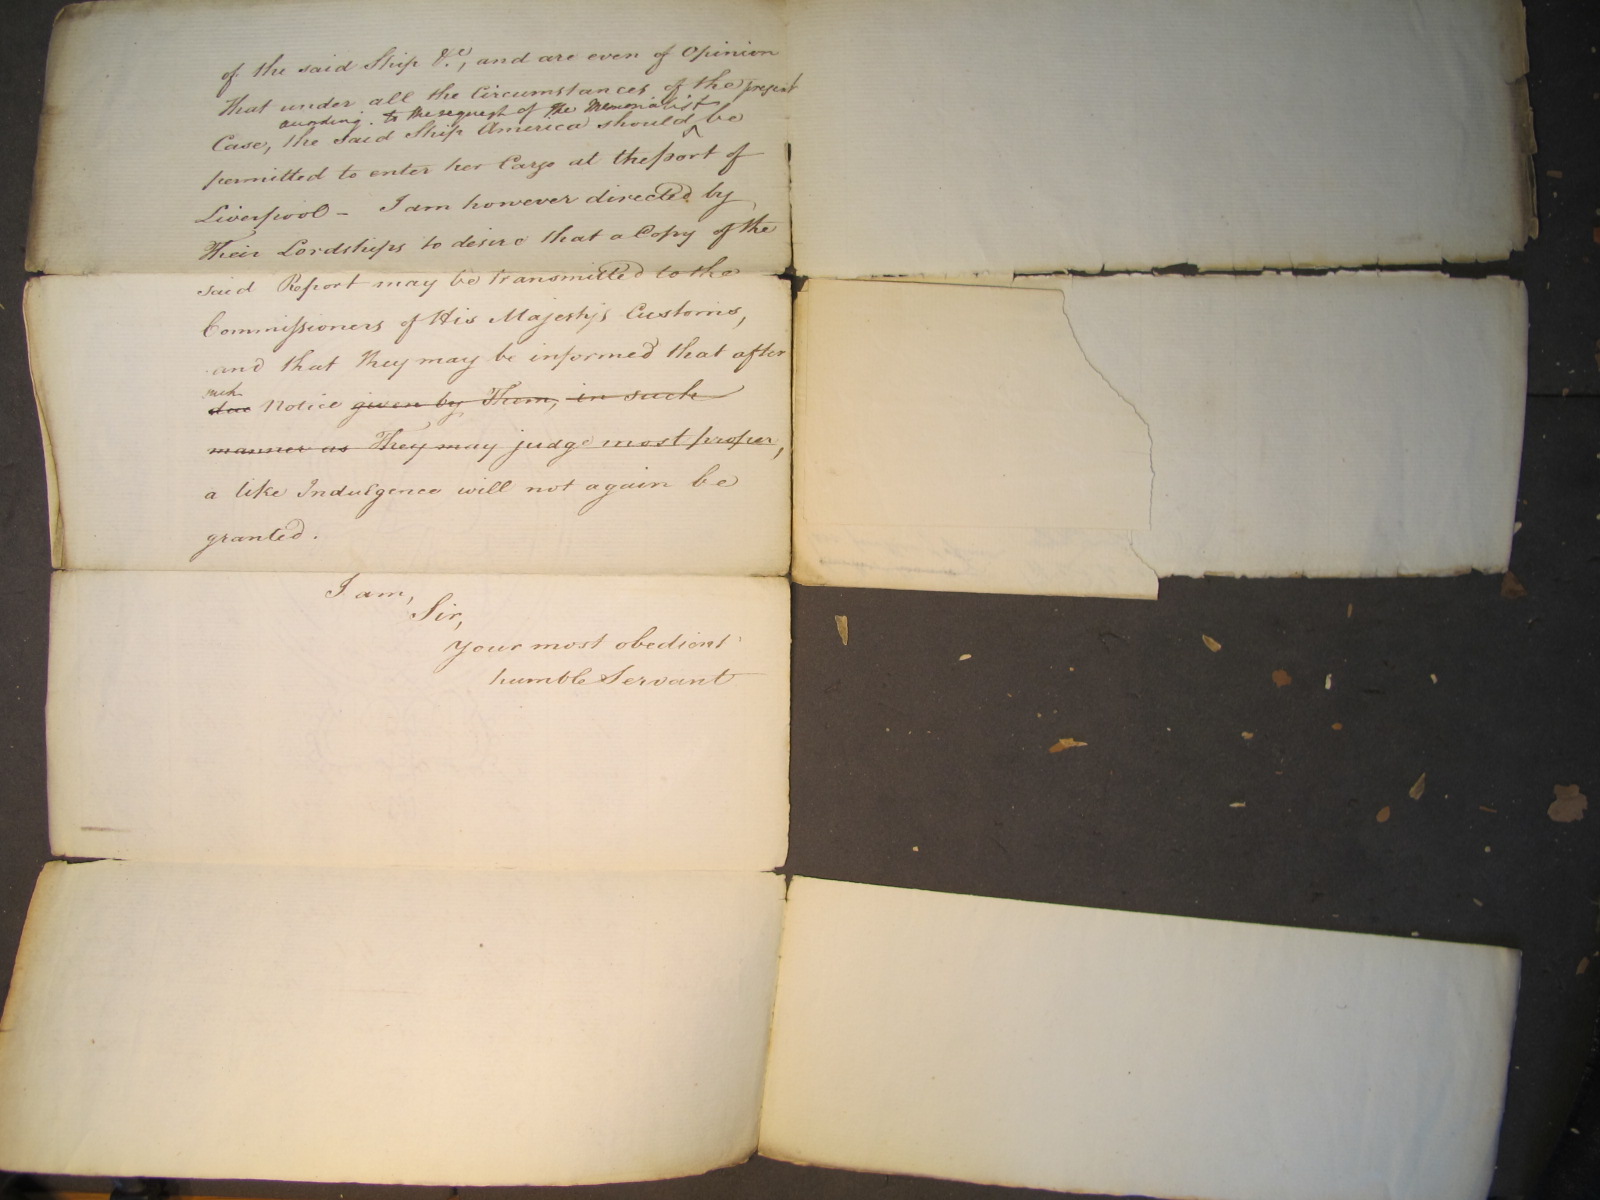 of the said Ship &c, and are even of Opinion
that under all the Circumstances of the present
according to the request of the Memorialist
Case, the said Ship America should ‸ be
permitted to enter her Cargo at the port of
Liverpool - I am however directed by
Their Lordships to desire that a Copy of the
said Report may be transmitted to the
Commissioners of His Majesty's Customs,
and that they may be informed that after
such
due Notice given by Them, in such
manner as They may judge most proper,
a like Indulgence will not again be
granted.
I am,
Sir,
your most obedient
humble Servant